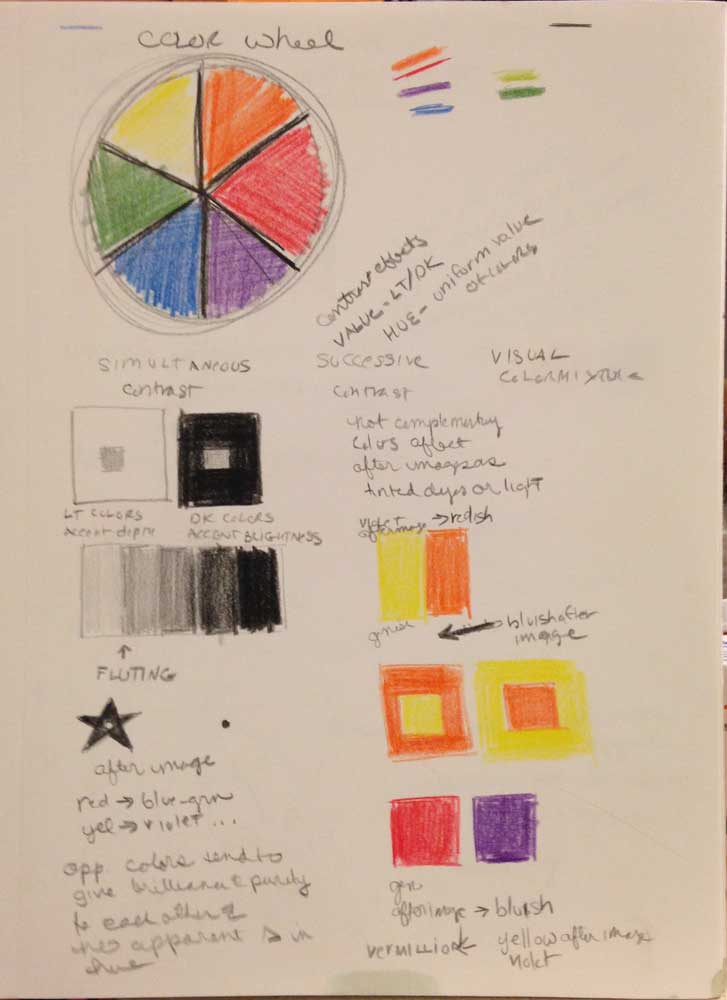 COLOR Wheel
Contrast effects
VALUE = LT/DK
HUE - uniform value
SIMULTANEOUS
Contrast
LT COLORS
Accent depth
DK COLORS
ACCENT BRIGHTNESS
↑
FLUTING
after image
red → blue-grn
yel → violet ...
opp. colors tend to
give brilliance & purity
to each other &
apparent in
hue
SUCCESSIVE
Contrast
not complementary
colors affect
after images as
tinted dyes or light
violet
afterimage → redish
← bluish after
image
grn
afterimage → bluish
vermillion
yellow after image
violet
VISUAL
COLOR MIXTURE